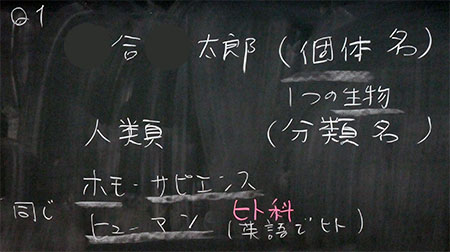 Q1
合 太郎 (個体名)
1つの生物
人類 (分類名)
ホモ・サピエンス
同じ
ヒト科
ヒューマン (英語でヒト)